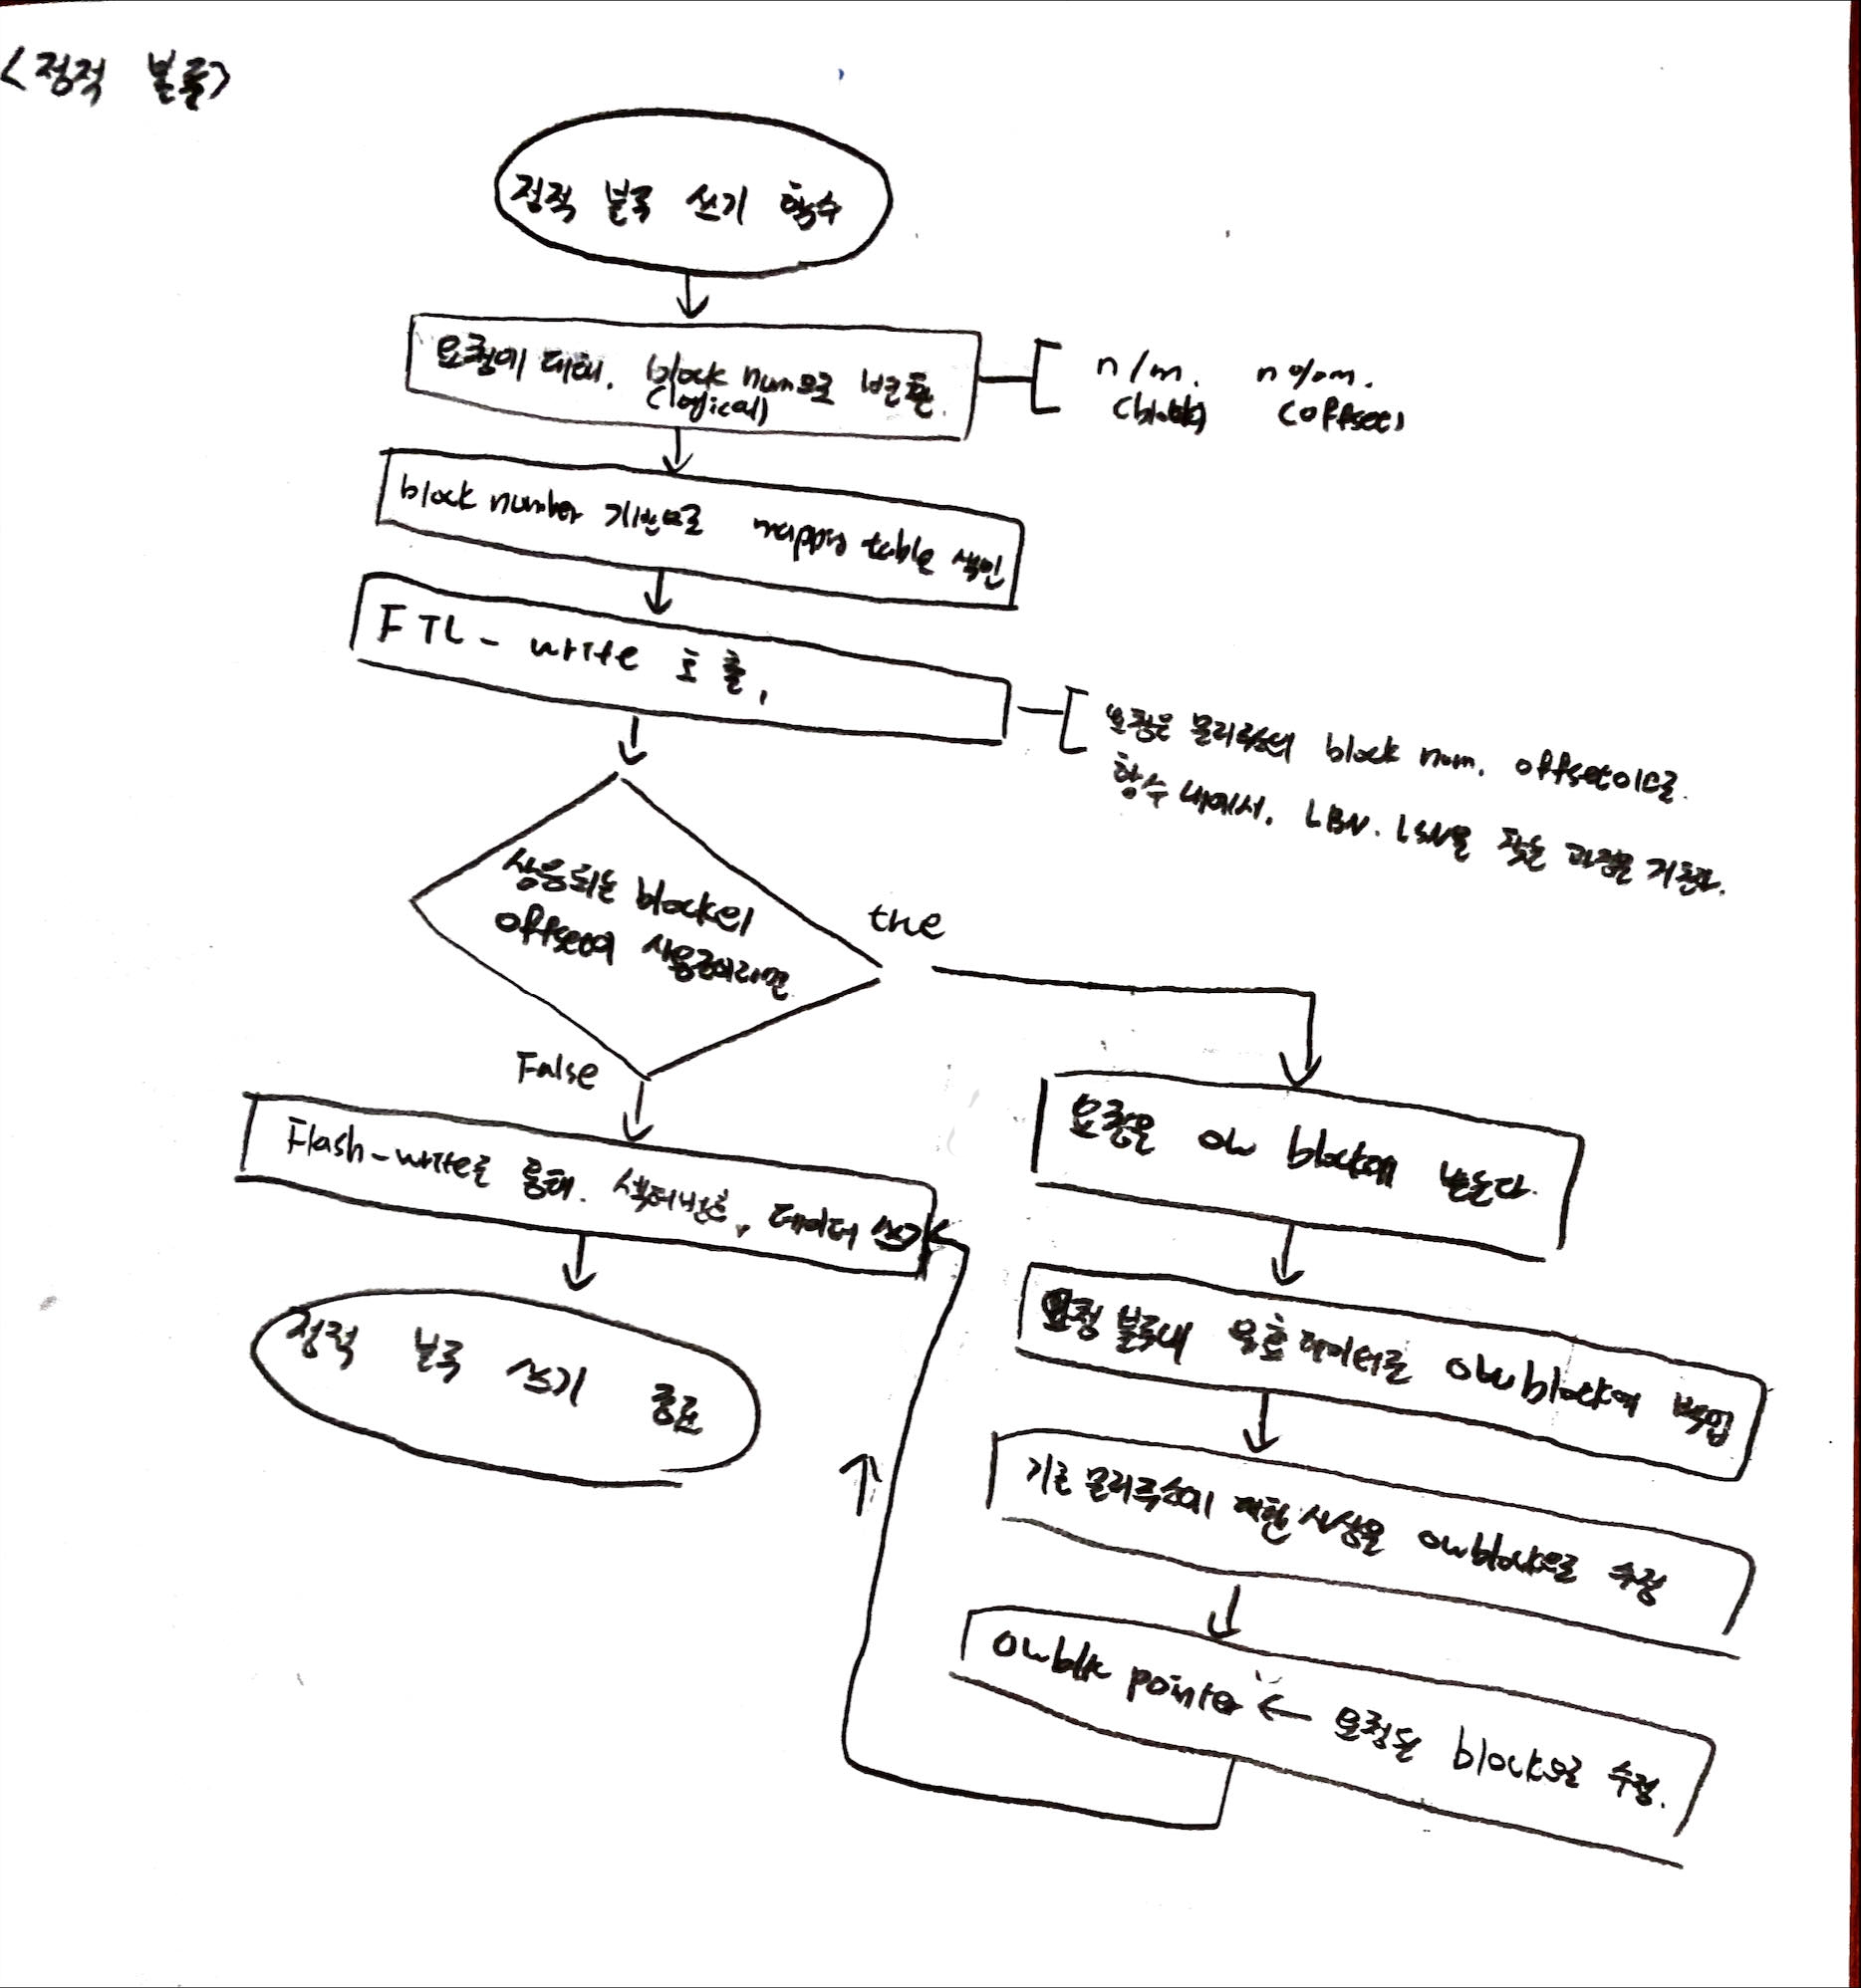 <정적 블록>
정적 블록 쓰기 함수
요청에 대해. block num으로 변환.
(logical)
n/m. n%m.
(block) (offset)
block number 기반으로 mapping table 색인
FTL - write 호출,
요청은 물리주소의 block num. offset이므로.
함수 내에서. LBN. LSN을 찾는 과정을 거친다.
상응되는 block의
offset에 사용중이라면
true
False
Flash-write를 통해. 섹터번호, 데이터 쓰기
정적 블록 쓰기 종료
요청을 ow block에 받는다.
요청 블록내 유효데이터를 ow block에 백업
기존 물리주소에 대한 사상을 ow block으로 수정
owblk pointer ← 요청된 block으로 수정.